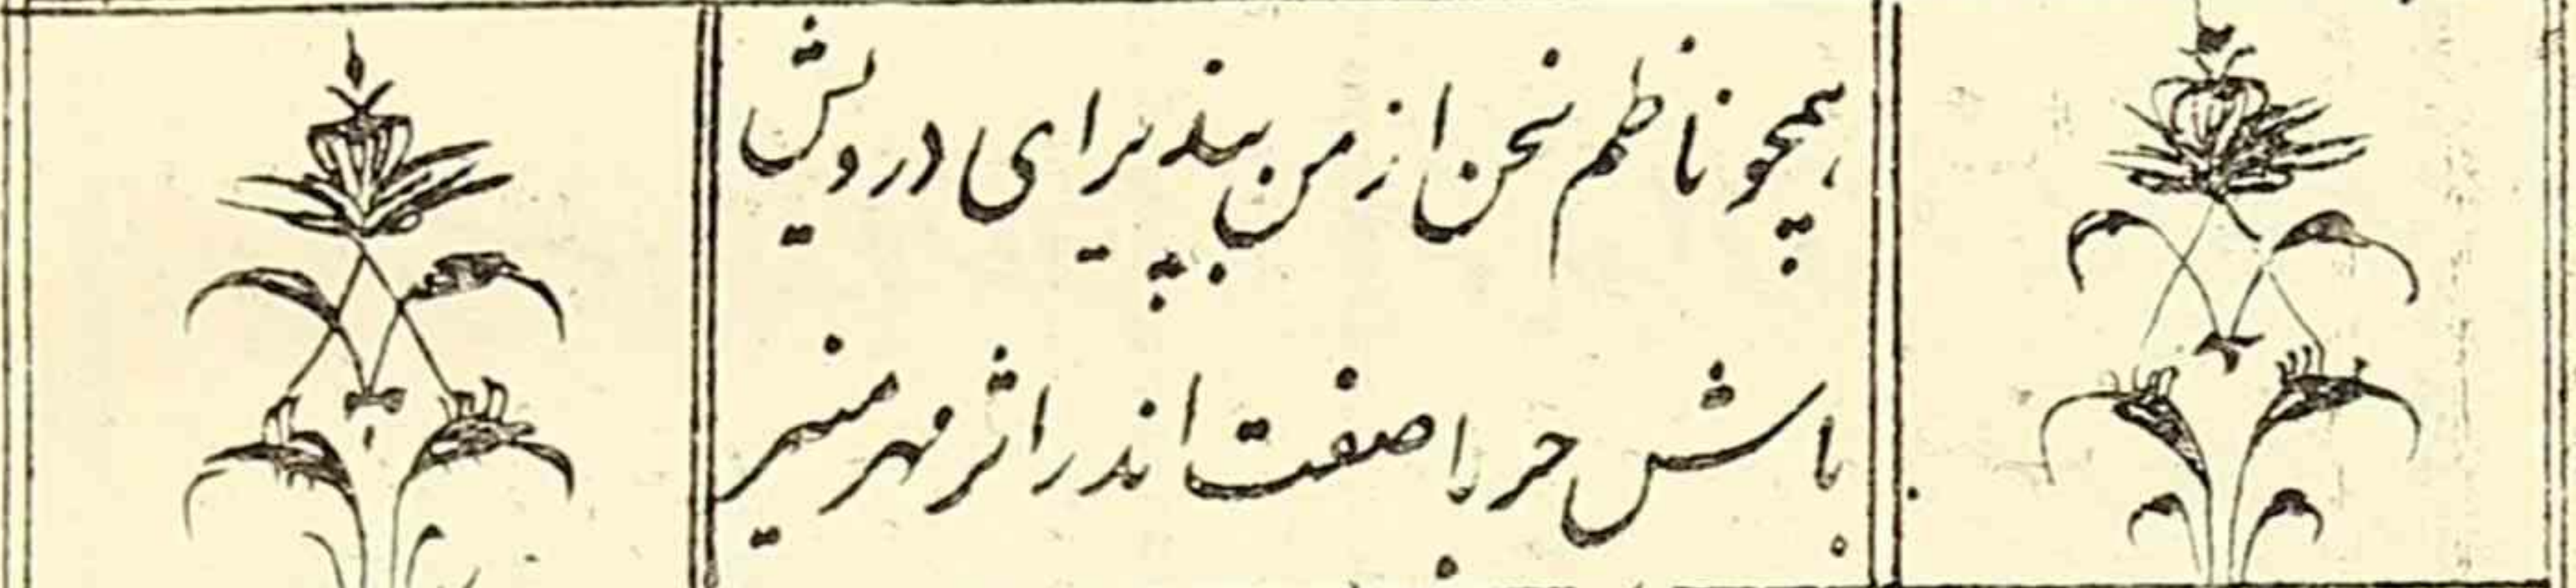 همچو ناظم سخن از من بپذیر ای درویش
باش حربا صفت اندر اثر مهر منیر